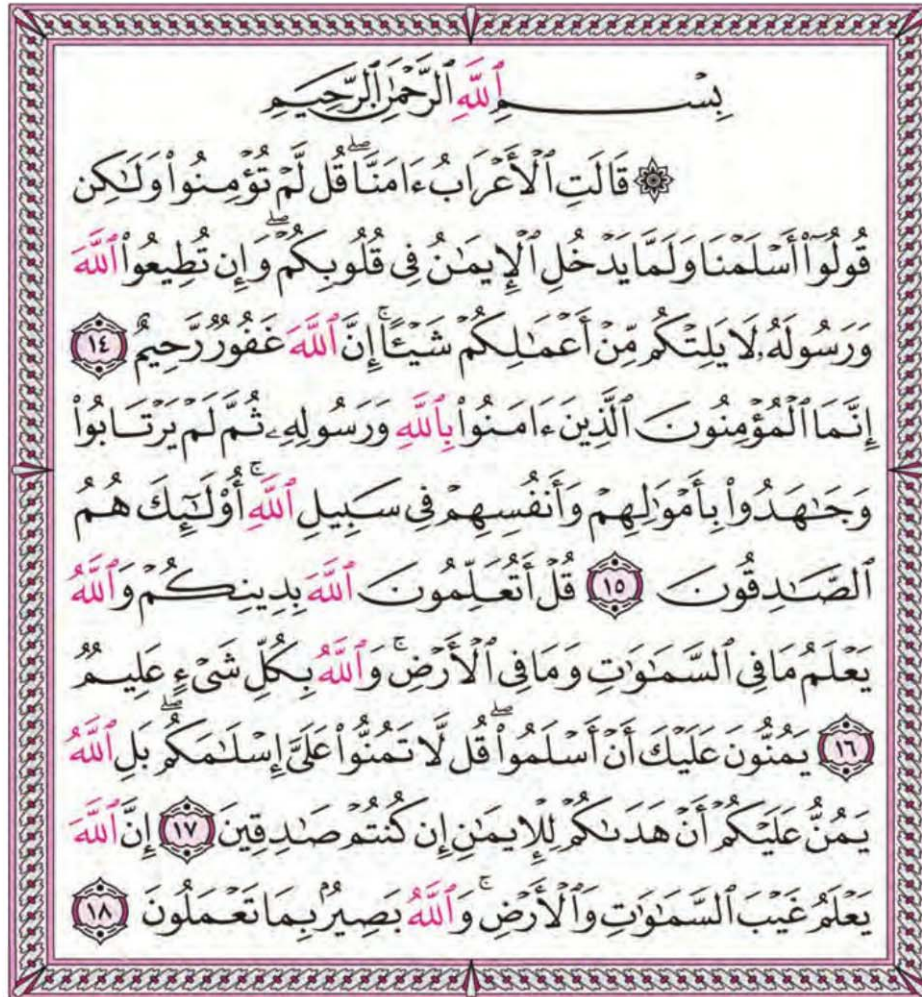 بِسْمِ ٱللَّهِ ٱلرَّحْمَٰنِ ٱلرَّحِيمِ
۞ قَالَتِ ٱلْأَعْرَابُ ءَامَنَّاۖ قُل لَّمْ تُؤْمِنُوا۟ وَلَٰكِن
قُولُوٓا۟ أَسْلَمْنَا وَلَمَّا يَدْخُلِ ٱلْإِيمَٰنُ فِى قُلُوبِكُمْۖ وَإِن تُطِيعُوا۟ ٱللَّهَ
وَرَسُولَهُۥ لَا يَلِتْكُم مِّنْ أَعْمَٰلِكُمْ شَيْـًٔاۚ إِنَّ ٱللَّهَ غَفُورٌ رَّحِيمٌ ١٤
إِنَّمَا ٱلْمُؤْمِنُونَ ٱلَّذِينَ ءَامَنُوا۟ بِٱللَّهِ وَرَسُولِهِۦ ثُمَّ لَمْ يَرْتَابُوا۟
وَجَٰهَدُوا۟ بِأَمْوَٰلِهِمْ وَأَنفُسِهِمْ فِى سَبِيلِ ٱللَّهِۚ أُو۟لَٰٓئِكَ هُمُ
ٱلصَّٰدِقُونَ ١٥ قُلْ أَتُعَلِّمُونَ ٱللَّهَ بِدِينِكُمْ وَٱللَّهُ
يَعْلَمُ مَا فِى ٱلسَّمَٰوَٰتِ وَمَا فِى ٱلْأَرْضِۚ وَٱللَّهُ بِكُلِّ شَىْءٍ عَلِيمٌ
١٦ يَمُنُّونَ عَلَيْكَ أَنْ أَسْلَمُوا۟ۖ قُل لَّا تَمُنُّوا۟ عَلَىَّ إِسْلَٰمَكُمۖ بَلِ ٱللَّهُ
يَمُنُّ عَلَيْكُمْ أَنْ هَدَىٰكُمْ لِلْإِيمَٰنِ إِن كُنتُمْ صَٰدِقِينَ ١٧ إِنَّ ٱللَّهَ
يَعْلَمُ غَيْبَ ٱلسَّمَٰوَٰتِ وَٱلْأَرْضِۚ وَٱللَّهُ بَصِيرٌۢ بِمَا تَعْمَلُونَ ١٨